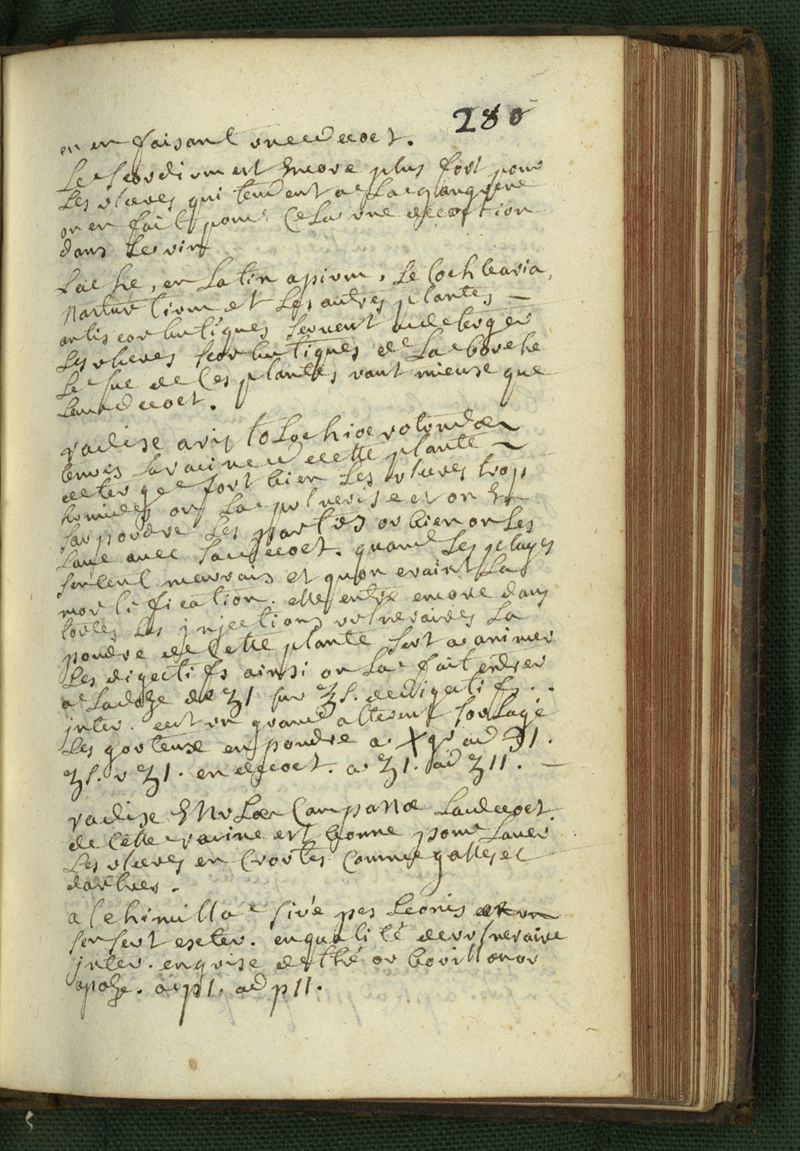 280
on en faisant une decoct.
Le scordium est encore plus fort pour
Les ulceres qui tendent a La gangrene
on en fait pour Cela une decoction
dans Le vin
L'ache, en Latin apium, Le Cochlearia,
Nasturtium et Les autres plantes
antiscorbutiques servent a deterger
Les ulceres scorbutiques de La bouche
Le suc de Ces plantes vaut mieux que
Leur decoct.
radise aristolochiæ rotundæ
La racine de cette plante
deterge fort bien Les ulceres trop
humides on La pulverise et on En
saupoudre Les parties ou bien on Les
Lave avec sa decoct. quand Les playes
sentent mauvais et quon craint La
mortification. elle entre encore dans
toutes Les injections vulneraires La
poudre de Cette plante sert a animer
Les digectifs ainsi on La fait entrer
a La doze de ʒ1 sur ℥s. de digectif..
inter. est un grand alterant soulage
Les gouteux en poudre a. Xgr ad Э1.
ʒs. u ʒ1. en decoct. a ʒ1. ad ʒ11.
radise EnuLæ CampaNæ La decoct.
de Cette racine est bonne pour Laver
Les ulceres en Croutes Comme galles et
dartres.
alchimilla sive pes Leonis
sen sert exter. en qualité de vulneraire
inter. en guise de thé ou bouillon ou
apoze. a p1. ad p11.